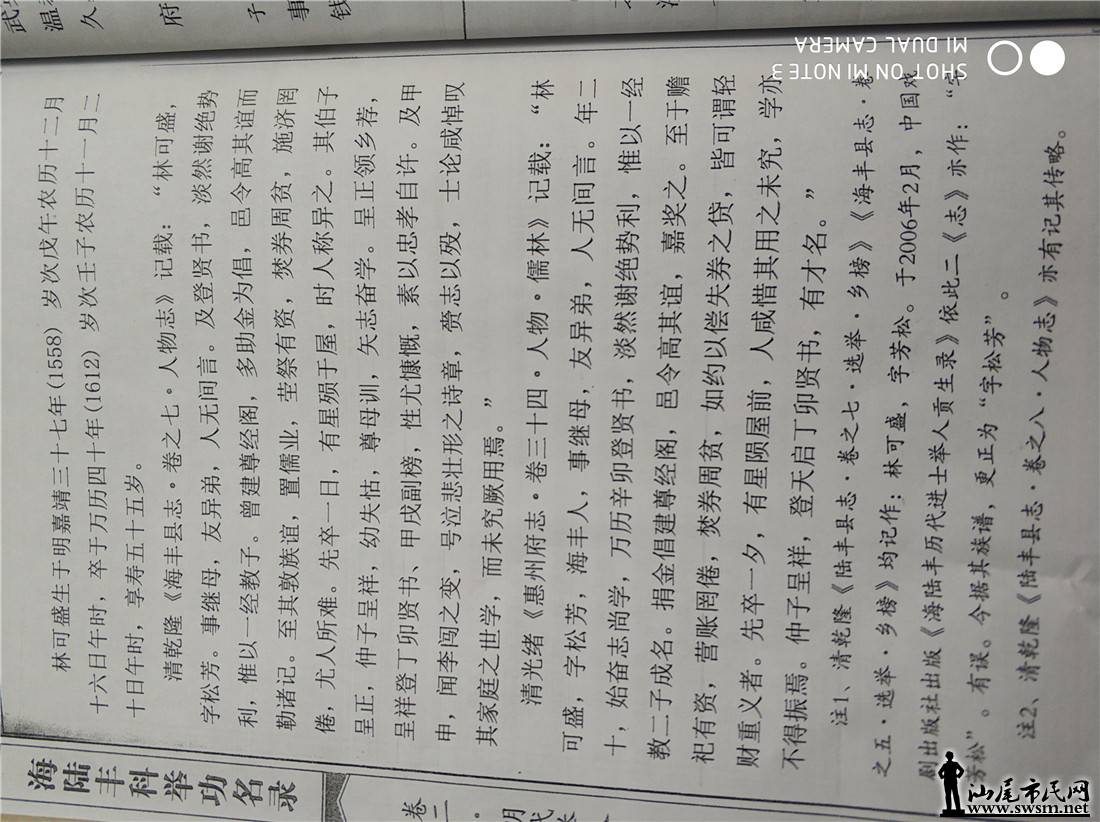 海陆丰科举功名录
卷二
林可盛生于明嘉靖三十七年(1558) 岁次戊午农历十二月
十六日午时，卒于万历四十年(1612) 岁次壬子农历十一月二
十日午时，享寿五十五岁。
清乾隆《海丰县志·卷之七·人物志》记载：“林可盛，
字松芳。事继母，友异弟，人无间言。及登贤书，淡然谢绝势
利，惟以一经教子。曾建尊经阁，多助金为倡，邑令高其谊而
勒诸记。至其敦族谊，置儒业，茔祭有资，焚券周贫，施济罔
倦，尤人所难。先卒一日，有星殒于屋，时人称异之。其伯子
呈正，仲子呈祥，幼失怙，尊母训，矢志奋学。呈正领乡荐，
呈祥登丁卯贤书、甲戌副榜，性尤慷慨，素以忠孝自许。及甲
申，闻李闯之变，号泣悲壮形之诗章，赍志以殁，士论咸悼叹
其家庭之世学，而未究厥用焉。”
清光绪《惠州府志·卷三十四·人物·儒林》记载：“林
可盛，字松芳，海丰人，事继母，友异弟，人无间言。年二
十，始奋志尚学，万历辛卯登贤书，淡然谢绝势利，惟以一经
教二子成名。捐金倡建尊经阁，邑令高其谊，嘉奖之。至于赡
祀有资，营账罔倦，焚券周贫，如约以偿失券之贷，皆可谓轻
财重义者。先卒一夕，有星陨屋前，人咸惜其用之未究，学亦
不得振焉。仲子呈祥，登天启丁卯贤书，有才名。”
注1、清乾隆《陆丰县志·卷之七·选举·乡榜》《海丰县志·卷
之五·选举·乡榜》均记作：林可盛，字芳松。于2006年2月，中国戏
剧出版社出版《海陆丰历代进士举人贡生录》依此二《志》亦作：“字
芳松”。有误。今据其族谱，更正为“字松芳”。
注2、清乾隆《陆丰县志·卷之八·人物志》亦有记其传略。
SHOT ON MI NOTE 3
MI DUAL CAMERA
汕尾市民网
www.swsm.net